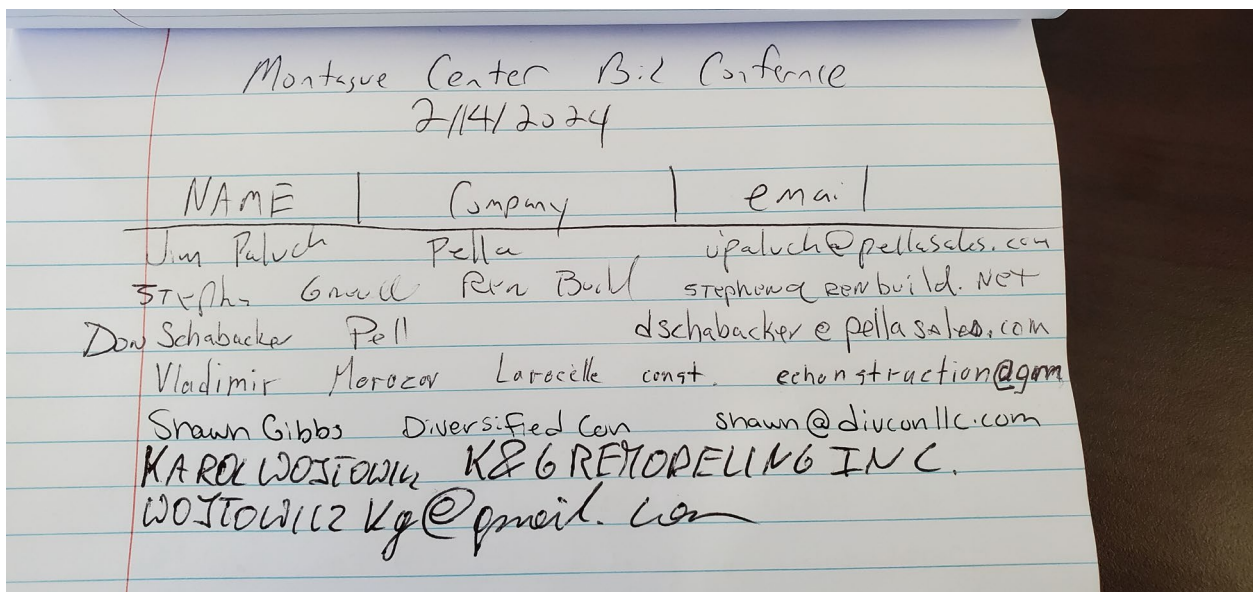 Montague Center Bid Confernce
2/14/2024
NAME | Company | email
Jim Paluch Pella jpaluch@pellasales.com
Ren Build stephen@renbuild.net
Don Schabacker Pell dschabacker@pellasales.com
Vladimir Morozov Larocelle const. echonstruction@gm
Shawn Gibbs Diversified Con shawn@divconllc.com
KAROL WOJTOWICZ K&G REMODELING INC.
WOJTOWICZKg@gmail.com